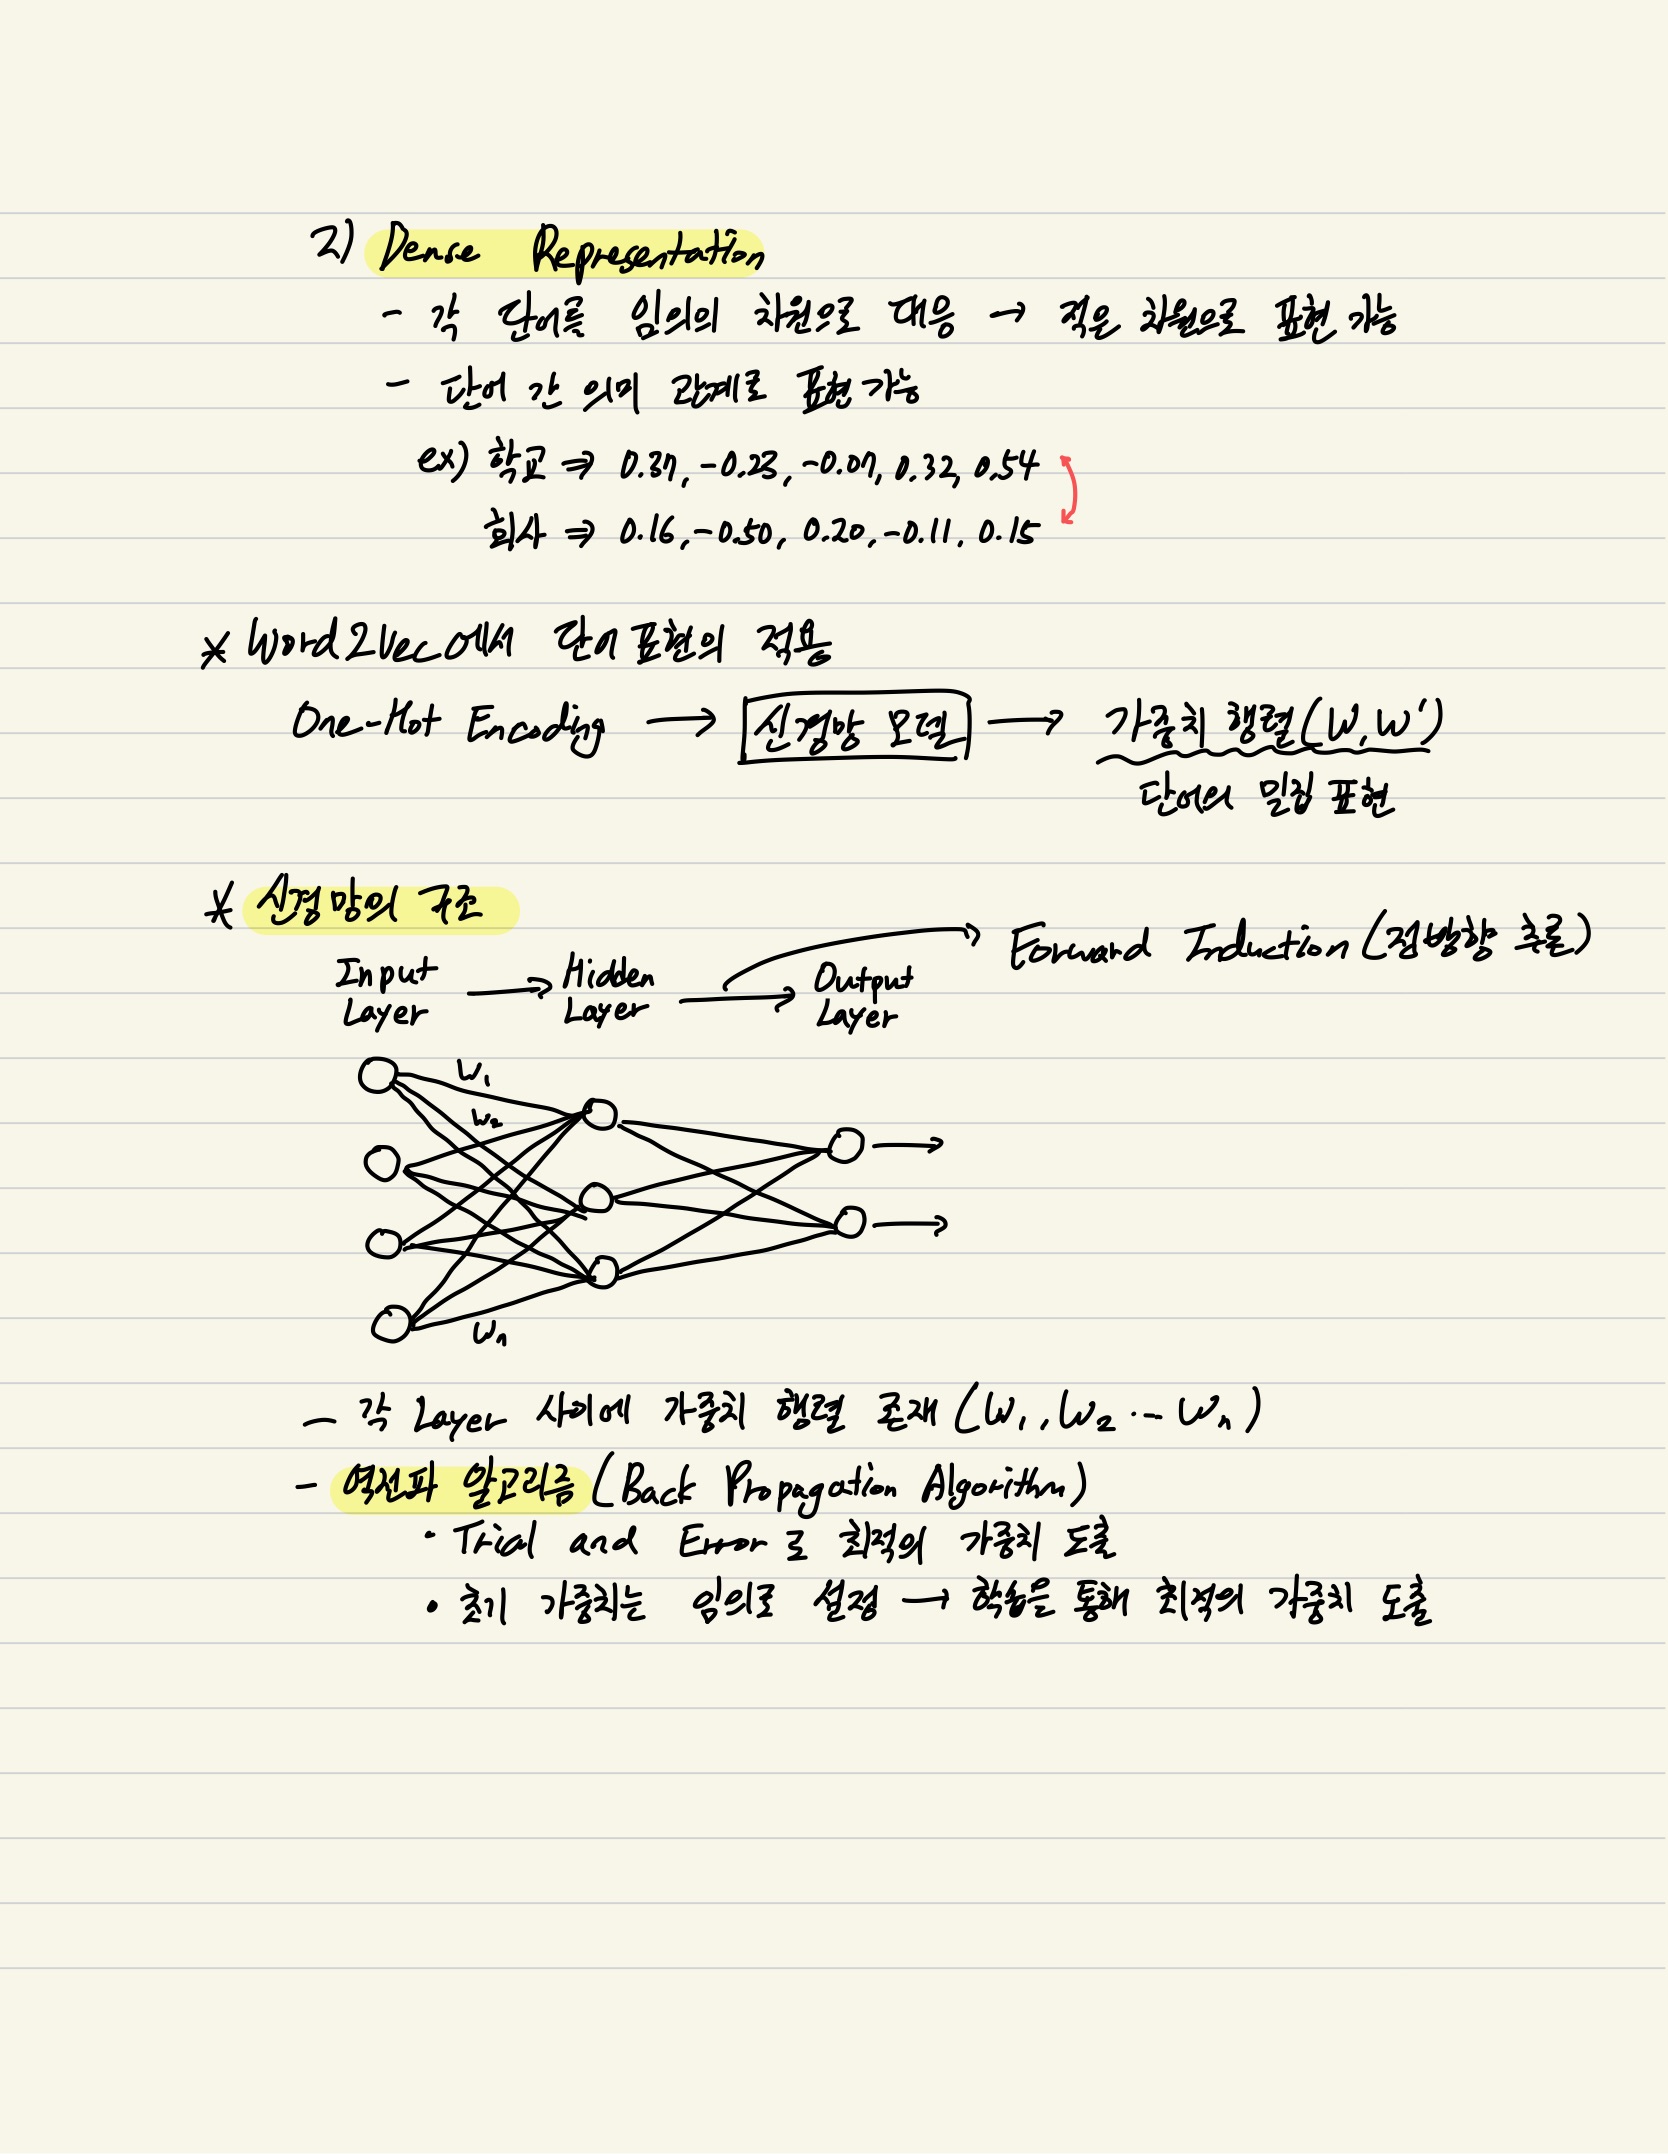 2) Dense Representation
- 각 단어를 임의의 차원으로 대응 → 적은 차원으로 표현 가능
- 단어 간 의미 관계로 표현 가능
ex) 학교 ⇒ 0.37, -0.23, -0.07, 0.32, 0.54
회사 ⇒ 0.16, -0.50, 0.20, -0.11, 0.15
* Word2Vec에서 단어 표현의 적용
One-Hot Encoding → 신경망 모델 → 가중치 행렬(W, W')
단어의 밀집 표현
* 신경망의 구조
Forward Induction (점방향 추론)
Input Layer → Hidden Layer → Output Layer
W1
W2
Wn
- 각 Layer 사이에 가중치 행렬 존재 (W1, W2 ... Wn)
- 역전파 알고리즘 (Back Propagation Algorithm)
· Trial and Error로 최적의 가중치 도출
• 초기 가중치는 임의로 설정 → 학습을 통해 최적의 가중치 도출